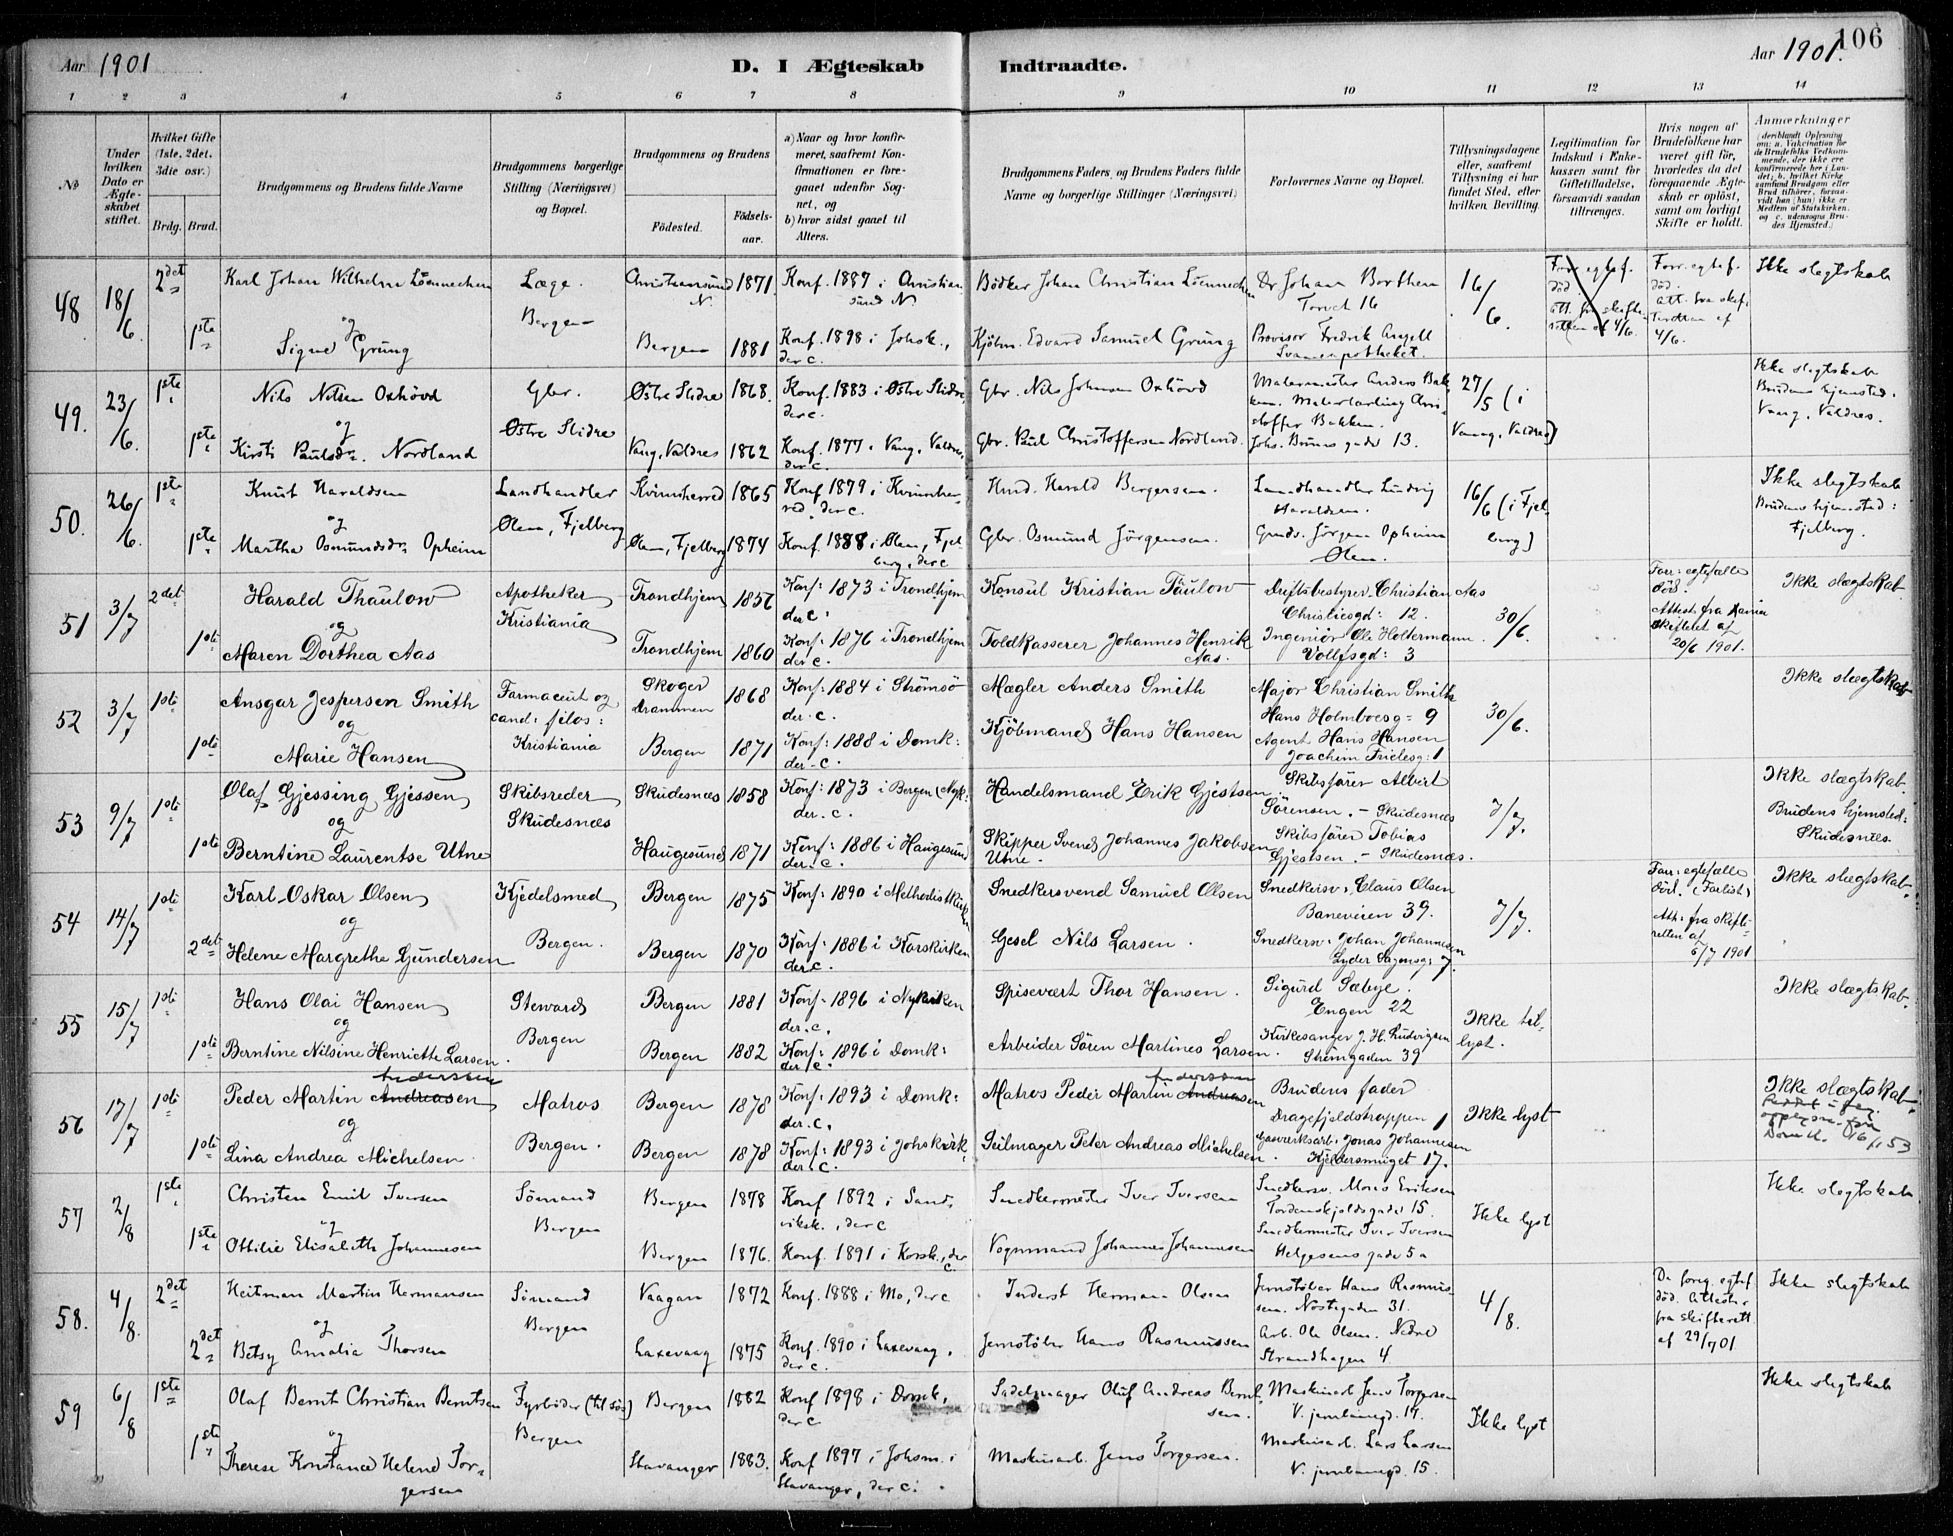 106
Aar 1901
D. I Ægteskab Indtraadte.
Aar 1901.
1 2 3 4 5 6 7 8 9 10 11 12 13 14
№
Under hvilken Dato er Ægteskabet stiftet.
Hvilket Gifte (1ste, 2det, 3die osv.)
Brdg. Brud.
Brudgommens og Brudens fulde Navne
Brudgommens borgerlige Stilling (Næringsvei) og Bopæl.
Brudgommens og Brudens
Födested.
Födsels-aar.
a) Naar og hvor konfirmeret, saafremt Konfirmationen er foregaaet udenfor Sognet, og
b) hvor sidst gaaet til Alters.
Brudgommens Faders, og Brudens Faders fulde Navne og borgerlige Stillinger (Næringsvei)
Forlovernes Navne og Bopæl.
Tillysningsdagene eller, saafremt Tillysning ei har fundet Sted, efter hvilken Bevilling.
Legitimation for Indskud i Enkekassen samt for Giftetilladelse, forsaavidt saadan tiltrænges.
Hvis nogen af Brudefolkene har været gift för, hvorledes da det foregaaende Ægteskab er oplöst, samt om lovligt Skifte er holdt.
Anmærkninger
(deriblandt Oplysning om: a. Vakcination for de Brudefolks Vedkommende, der ikke ere konfirmerede her i Landet, b. hvilket Kirkesamfund Brudgom eller Brud tilhörer, forsaavidt han (hun) ikke er Medlem af Statskirken, og c. udensogns Brudes Hjemsted.)
48 18/6. 2det Karl Johan Wilhelm Löennechen Læge. Christiansund N. 1871 Konf. 1887 i Christiansund N Bödker Johan Christian Löennechen Dr Johan Borthen Torvet 16 16/6. Forr. egtef. död. att. fra skifteretten af 4/6. Forr. egtef. död. att. fra skifteretten af 4/6. Ikke slegtskab
og Bergen
1ste Signe Grung Bergen 1881 Konf. 1898 i Johsk., der c. Kjöbm. Edvard Samuel Grung Provisor Fredrik Angell Svaneapotheket.
49. 23/6. 1ste Nils Nilsen Oxhövd Gbr. Østre Slidre 1868. Konf. 1883 i Østre Slidre, der c. Gbr. Nils Johnsen Oxhövd Malermester Anders Bakken. Malerlærling Christoffer Bakken. Johs. Bruns gade 13. 27/5 (i Vang, Valdres) Ikke slegtskab Brudens hjemsted: Vang, Valdres.
og Østre Slidre
1ste Kirsti Paulsdr. Nordland Vang, Valdres 1862 Konf. 1877 i Vang, Valdres, der c. Gbr. Paul Christoffersen Nordland.
50. 26/6. 1ste Knut Haraldsen Landhandler Kvinnherred 1865 Konf. 1879 i Kvinnherred, der c. Hmd. Harald Bergersen. Landhandler Ludvig Haraldsen. 16/6 (i Fjelberg) Ikke slegtskab Brudens hjemsted: Fjelberg.
og Ølen, Fjelberg
1ste Martha Osmundsdr. Opheim Ølen, Fjelberg 1874 Konf. 1888 i Ølen, Fjelberg, der c Gbr. Osmund Jörgensen. Gmds. Jörgen Opheim Ølen.
51 3/7 2det Harald Thaulow Apotheker Trondhjem 1856 Konf: 1873 i Trondhjem der c: Konsul Kristian Täulow Driftsbestyrer Christian Aas Christiesgd: 12. 30/6. Forr: egtefælle död. Attest. fra Hamar Skifteret af 20/6 1901. Ikke slægtskab
og Kristiania
1ste Maren Dorthea Aas Trondhjem 1860 Konf: 1876 i Trondhjem der c. Toldkasserer Johannes Henrik Aas. Ingeniør Ole Holtermann. Vollfsgd: 3
52 3/7 1ste Ansgar Jespersen Smith Farmaceut og cand: filos: Skoger Drammen 1868 Konf: 1884 i Strømsö der c. Mægler Anders Smith Major Christian Smith Hans Holmboesg: 9 30/6. Ikke slægtskab
og Kristiania
1ste Marie Hansen Bergen 1871 Konf: 1888 i Domk: der c. Kjöbmand Hans Hansen Agent Hans Hansen Joachim Frielesg: 1
53 9/7 1ste Olaf Gjessing Gjessen Skibsreder Skudesnæs 1858 Konf: 1873 i Bergen (Nyk: der c. Handelsmand Erik Gjestsen Skibsfører Albert Sörensen. - Skudesnæs 7/7. Ikke slægtskab. Brudens hjemsted: Skudesnæs.
og Skudesnæs
1ste Berntine Laurentse Utne Haugesund 1871 Konf: 1886 i Haugesund der c. Skipper Svend Johannes Jakobsen Utne. Skibsfører Tobias Gjestsen. - Skudesnæs.
54 14/7 1ste Karl Oskar Olsen Kjedelsmed Bergen 1875 Konf: 1890 i Methodistkirken Snedkersvend Samuel Olsen Snedkersv: Claus Olsen Baneveien 39. 7/7. Forr: egtefælle död. (Forlist) Att: fra skifteretten af 6/7 1901 Ikke slægtskab.
og Bergen.
2det Helene Margrethe Gundersen Bergen 1870 Konf: 1886 i Korskirken der c. Gesel Nils Larsen. Snedkersv: Johan Johannesen Lyder Sagensg: 7.
55 15/7 1ste Hans Olai Hansen Steward Bergen 1881 Konf: 1896 i Nykirken der c. Spisevært Thor Hansen. Sigurd Sæbye. Engen 22 Ikke tillyst. Ikke slægtskab.
og Bergen
1ste Berntine Nilsine Henriette Larsen. Bergen 1882 Konf: 1896 i Domk: der c. Arbeider Sören Martines Larsen. Kirkesanger J. H. Ludvigsen Strømgaden 39
56 17/7 1ste Peder Martin Andreasen Anderssen Matros Bergen 1878 Konf: 1893 i Domk: der c. Matros Peder Martin Andreasen Anderssen Brudens fader Dragefjeldstrappen 1 Ikke lyst Ikke slægtskab. Domk. 16/1 53
og Bergen.
1ste Lina Andrea Michelsen Bergen 1878 Konf: 1893 i Johskirk: der c. Seilmager Peter Andreas Michelsen. Gasværksarb: Jonas Johannesen Kjeldersmuget 17.
57 2/8 1ste Christen Emil Iversen Sömand Bergen 1878 Konf 1892 i Sandviksk., der c Snedkermester Iver Iversen Snedkersv. Mons Eriksen Tordenskjoldsgade 15. Ikke lyst Ikke slegtskab
og Bergen
1ste Ottilie Elisabeth Johannesen Bergen 1876. Konf. 1891 i Korsk., der c. Vognmand Johannes Johannesen Snedkermester Iver Iversen Helgesens gade 5a
58. 4/8. 2det Heitman Martin Hermansen Sömand Vaagan 1872 Konf. 1888 i Mo, der c Inderst Herman Olsen Jernstöber Hans Rasmussen. Nöstegaden 31. 4/8. De foreg. egtef. död. Attester fra skifterett af 29/7 01 Ikke slegtskab
og Bergen
2det Betsy Amalia Thorsen Laxevaag 1875 Konf. 1890 i Laxevaag, der c. Jernstöber Hans Rasmussen Arb. Ole Olsen. Nedre Strandhagen 4
59 6/8 1ste Olaf Bernt Christian Berntsen Fyrböder (til söes) Bergen 1882 Konf 1898 i Domk, der c Sadelmager Oluf Andreas Berntsen. Maskinarb. Jens Torgersen V. jernbanegd. 17. Ikke lyst Ikke slegtskab
og Bergen
1ste Therese Konstance Helene Torgersen Stavanger 1883. Konf 1897 i Johsm. i Stavanger, der c. Maskinarb. Jens Torgersen. Maskinarb. Lars Larsen V. jernbanegd. 15.